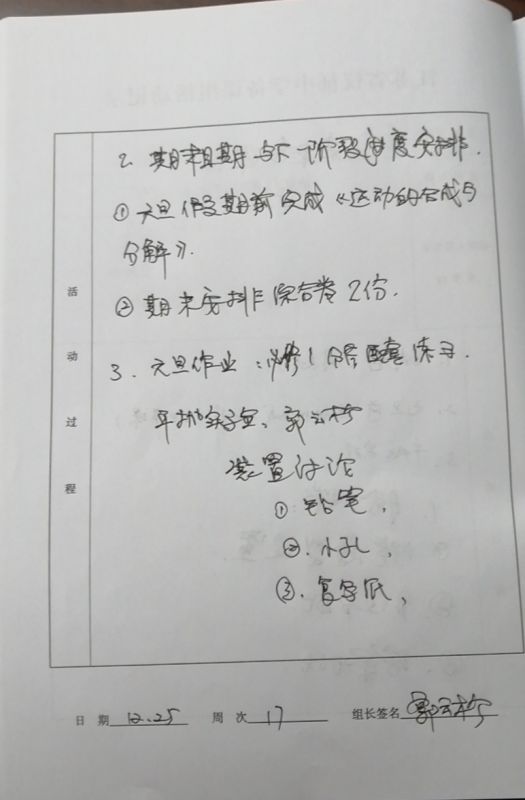 2. 期末复期与下一阶段进度安排.
① 元旦假期前完成《运动的合成与
分解》.
② 期末安排综合卷2份.
3. 元旦作业:必修1 配套练习.
平抛实验、郭云桥
装置讨论
① 铅笔,
②. 小孔,
③. 复写纸,
活动过程
日 期 12.25 周 次 17 组长签名 郭云桥